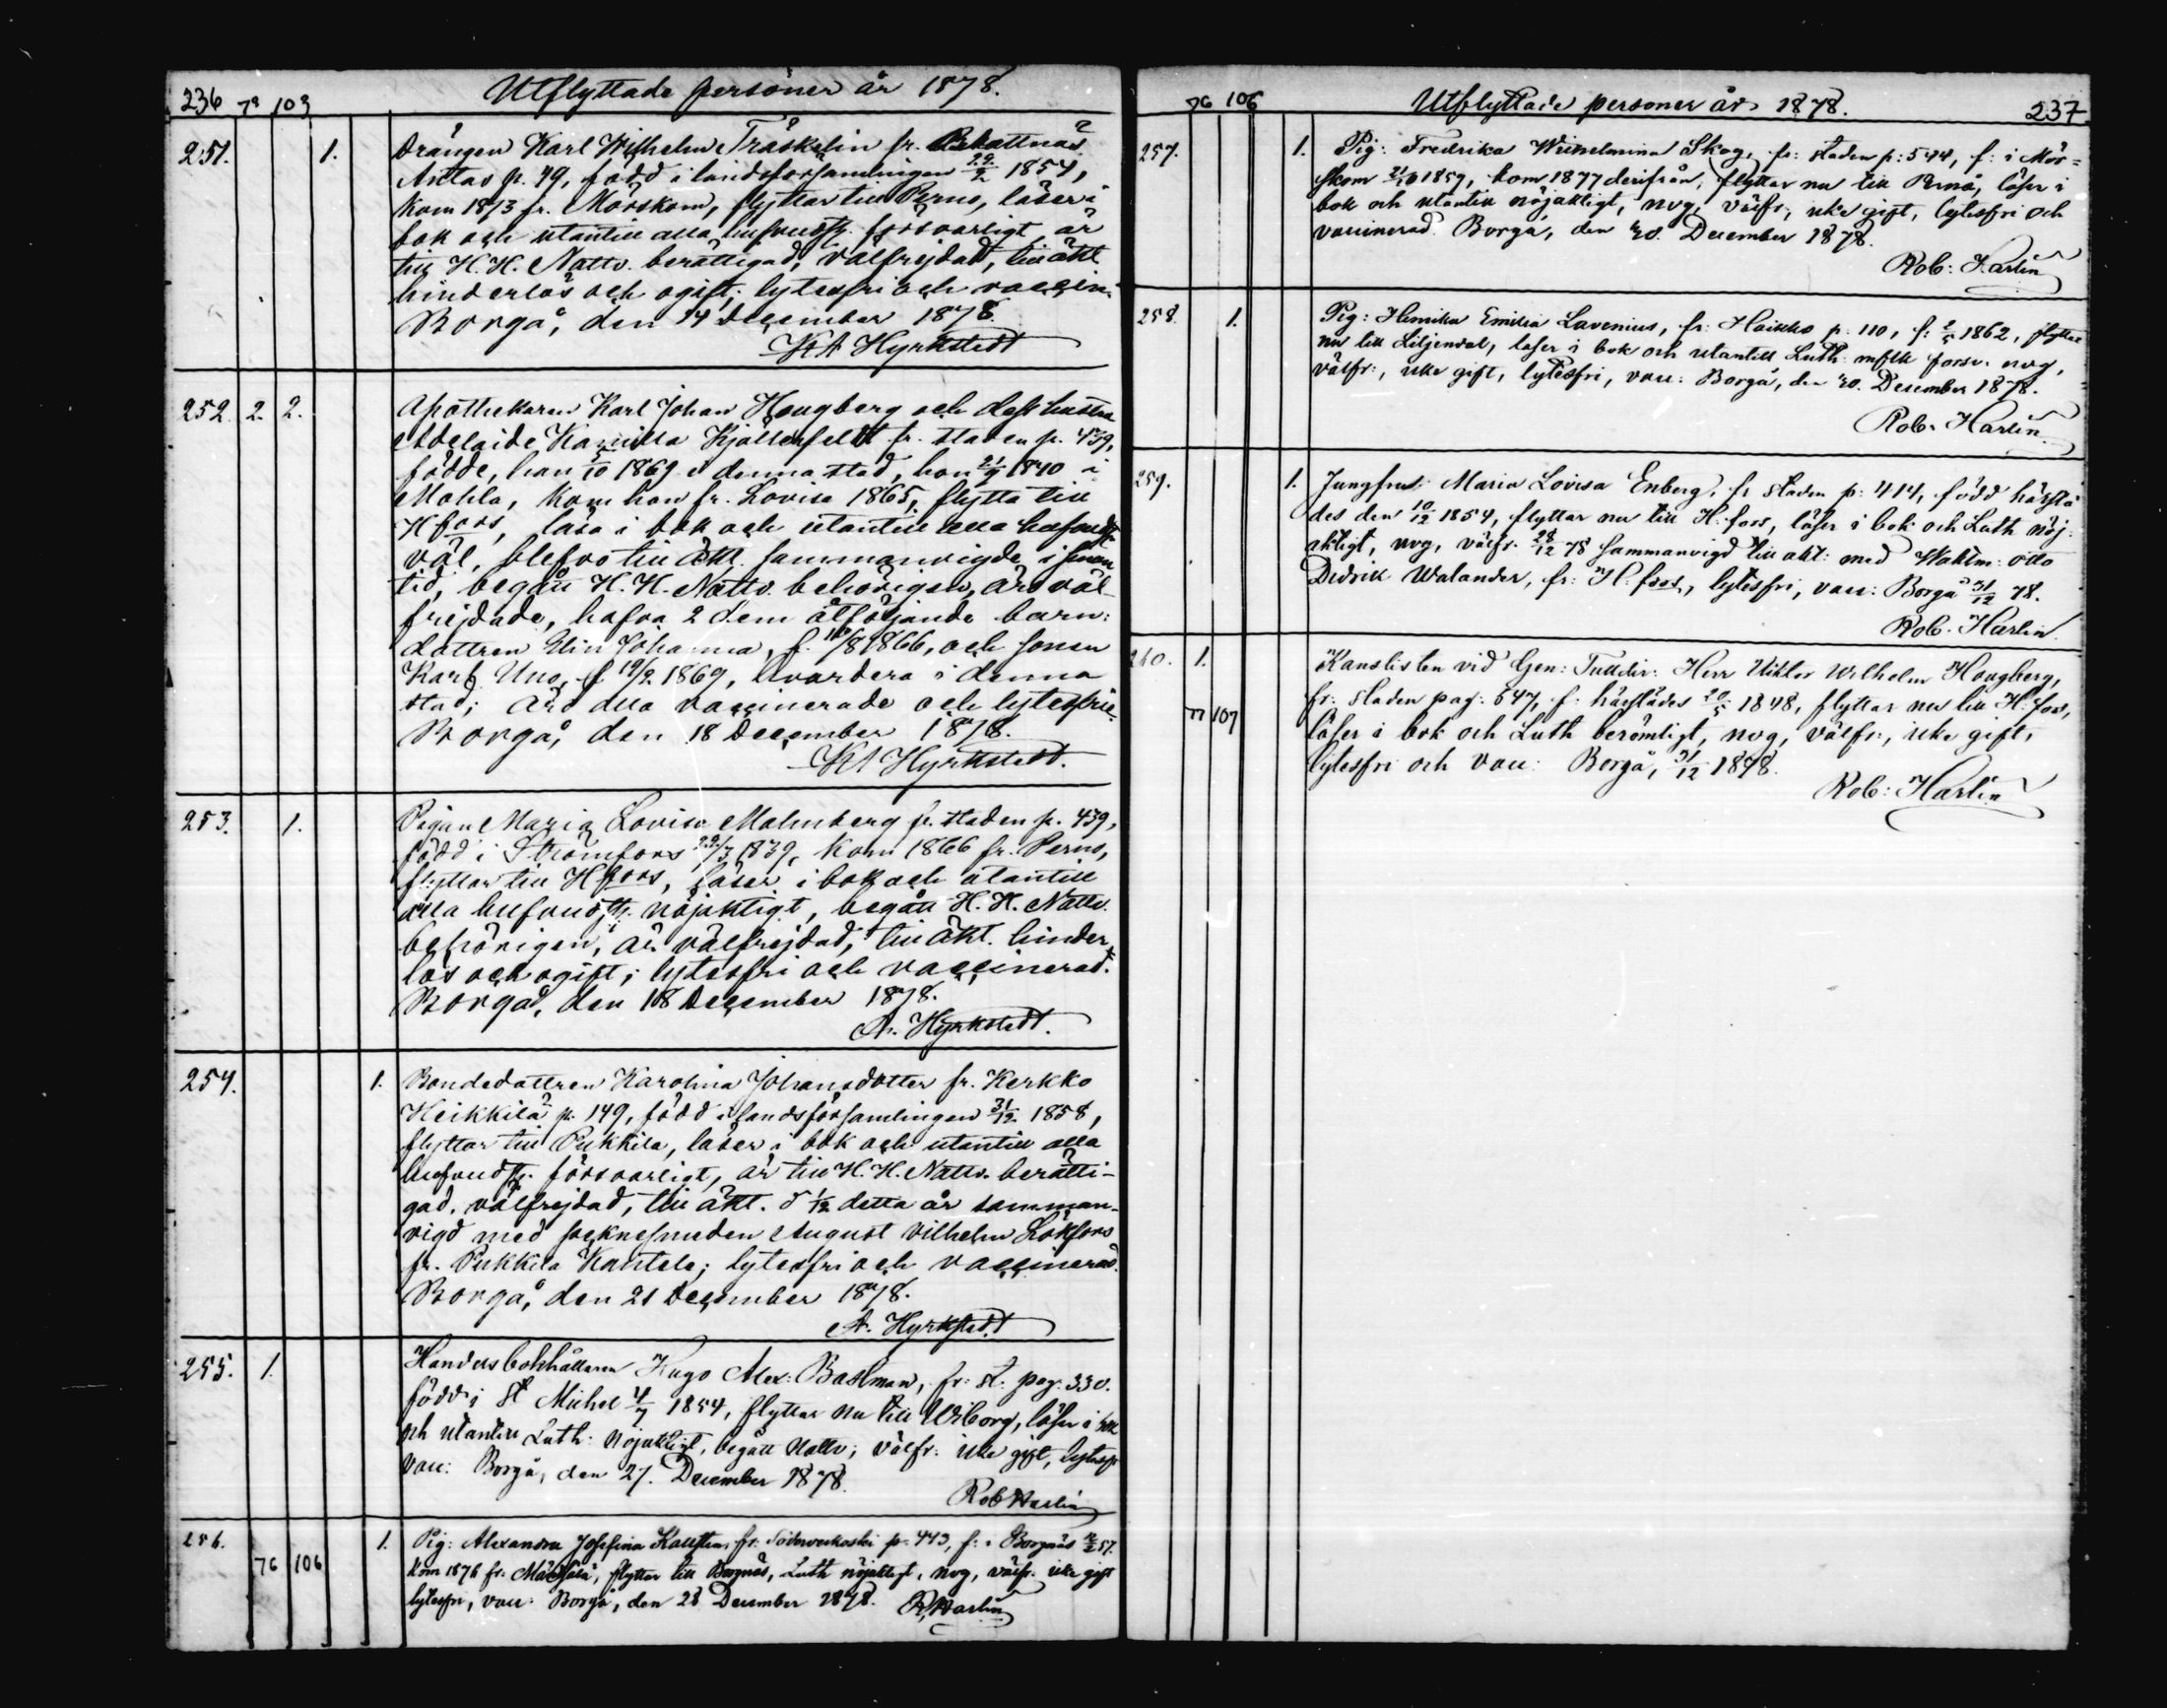 236 73 103 Utflyttade personer år 1878.
251. 1. Drängen Karl Wilhelm Träskelin fr.
Anttas p. 49, född i landsförsamlingen 22/2 1854,
kom 1873 fr. Mörskom, flyttar till Perno, läser i
bok och utantill alla hufvudst. försvarligt, är
till H. H. Nattv. berättigad, välfrejdad, till äkt.
hinderlös och ogift; lytesfri och vaccin.
Borgå, den 14 December 1878.
KA Hyrkstedt
252. 2. 2. Apothekaren Karl Johan Hougberg och dess hustru
Adelaide Kamilla Kjällenfeldt fr. staden p. 439,
födde, han /10 1869 i denna stad, hon 21/9 1840 i
Mohla, kom hon fr. Lovisa 1865, flytta till
Hfors, läsa i bok och utantill alla hufvudst.
väl, blefvo till äkt. sammanvigde i sinom
tid, begått H. H. Nattv. behörigen, äro väl-
frejdade, hafva 2 dem åtföljande barn:
dottren Elin Johanna, f. 10/8 1866, och sonen
Karl Uno, f 19/2 1869, hvardera i denna
stad; äro alla vaccinerade och lytesfrie.
Borgå, den 18 December 1878.
KA Hyrkstedt.
253. 1. Pigan Maria Lovisa Malmberg fr. staden p. 439,
född i Strömfors 29/3 1839, kom 1866 fr. Perno,
flyttar till Hfors, läser i bok och utantill
alla hufvudst. nöjaktigt, begått H. H. Nattv.
behörigen, är välfrejdad, till äkt. hinder-
lös och ogift; lytesfri och vaccinerad.
Borgå, den 18 December 1878.
A. Hyrkstedt.
254. 1. Bondedottren Karolina Johansdotter fr. Kerkko
Heikkilä p. 149, född i landsförsamlingen 31/12 1858,
flyttar till Pukkila, läser i bok och utantill alla
hufvudst. försvarligt, är till H. H. Nattv. berätti-
gad, välfrejdad, till äkt. d 1/12 detta år samman-
vigd med socknesmeden August Vilhelm Lökfors
fr. Pukkila Kantele; lytesfri och vaccinerad.
Borgå, den 21 December 1878.
A. Hyrkstedt
255. 1. Handelsbokhållaren Hugo Alex: Baslman, fr: st: pag: 330.
född i St Michel 4/7 1854, flyttar nu till Wiborg, läser i bok
och utantill Luth: nöjaktigt, begått Nattv; välfr: icke gift, lytesfr
vacc: Borgå, den 27. December 1878.
Rob Harlin
256. 76 106 1. Pig: Alexandra Josefina fr: Söderveckoski p: 443, f: i Borgnäs /2 57.
kom 1876 fr: flyttar till Borgnäs, Luth nöjaktigt, nvg, välfr: icke gift
lytesfri, vacc: Borgå, den 28 December 1878. R. Harlin
76 106 Utflyttade personer år 1878. 237
257. 1. Pig: Fredrika Wilhelmina Skog, fr: staden p: 544, f: i Mör=
skom 21/10 1859, kom 1877 derifrån, flyttar nu till Pernå, läser i
bok och utantill nöjaktigt, nvg, välfr:, icke gift, lytesfri och
vaccinerad. Borgå, den 20. December 1878.
Rob: Harlin
258. 1. Pig: Henrika Emilia Lavenius, fr: Haikko p: 110, f: 2/5 1862, flyttar
nu till Liljendal, läser i bok och utantill Luth: försv: nvg,
välfr:, icke gift, lytesfri, vacc: Borgå, den 20. December 1878.
Rob. Harlin
259. 1. Jungfrun Maria Lovisa Enberg, fr staden p: 414, född härstä
des den 10/12 1854, flyttar nu till H:fors, läser i bok och Luth nöj:
aktigt, nvg, välfr. 28/12 78 sammanvigd till äkt: med Waktm: Otto
Didrik Walander, fr: H:fors, lytesfri, vacc: Borgå 31/12 78.
Rob. Harlin
260. 1. Kanslisten vid Gen: Tulldir: Herr Viktor Wilhelm Hougberg,
77 107 fr: staden pag: 547, f: härstädes 20/5 1848, flyttar nu till H:fors,
läser i bok och Luth berömligt, nvg, välfr:, icke gift,
lytesfri och vacc: Borgå, 31/12 1878.
Rob: Harlin